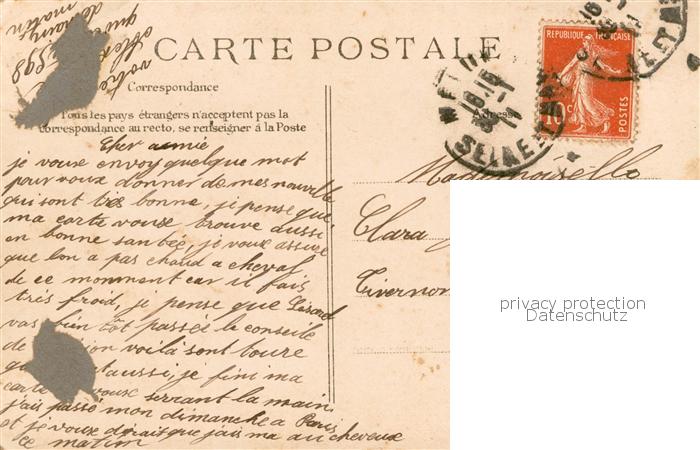 CARTE POSTALE
REPUBLIQUE FRANÇAISE
10c
POSTES
Correspondance
Tous les pays étrangers n'acceptent pas la
correspondance au recto, se renseigner à la Poste
Adresse
SEINE ET
Cher aamie
je vouse envoy quelque mot
pour voux donner de mes nouvelle
qui sont tres bonne, je pense que
ma carte vouse trouve aussi
en bonne santée, je voux assure
que lon a pas chaud a cheval
de ce monment car il fais
très froid, je pense que
vas bien tôt passée le conseile
de voilà sont toure
aussi, je fini ma
carte voux serrant la main
j'ais passé mon dimanche a Paris
et je voux dirait que jais ma au cheveux
ce matim
Mademoiselle
Clara
Tivernon
privacy protection
Datenschutz